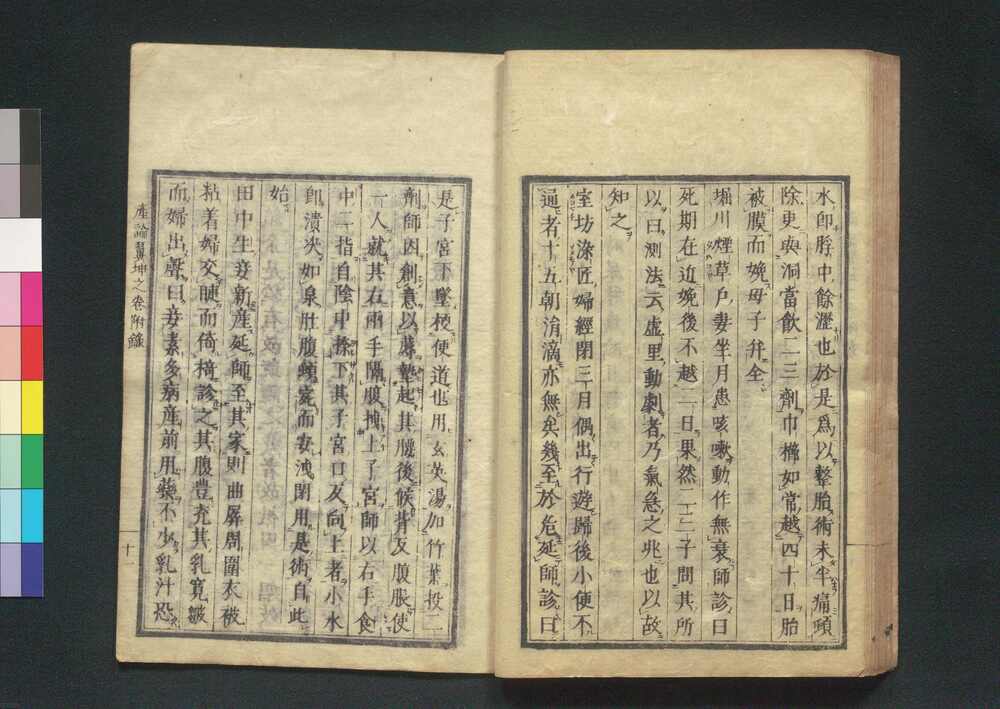 水即脬中餘瀝也於是爲以整胎術未半痛頓
除更與洞當飲二三劑巾櫛如常越四十日胎
被膜而娩母子幷全
堀川煙草戶妻坐月患咳嗽動作無衰師診曰
死期在近娩後不越一日果然二三子問其所
以曰測法云虛里動劇者乃氣急之兆也以故
知之
室坊染匠婦經閉三月偶出行遊歸後小便不
通者十五朝涓滴亦無矣幾至於危延師診曰
是子宮下墜梗便道也用玄英湯加竹葉投二
劑師因創意以蓐墊起其腰後候背及腹脹使
一人就其右兩手隔腹拽上子宮師以右手食
中二指自陰中捺下其子宮口及向上者小水
卽潰決如泉肚腹頓寬而安洩閉用是術自此
始
田中生妾新產延師至其家則曲屛周圍衣被
粘着婦交睫而倚椅診之其腹豊充其乳寬皺
而婦出聲曰妾素多病産前用藥不少乳汁恐
產論翼坤之卷附錄
十一